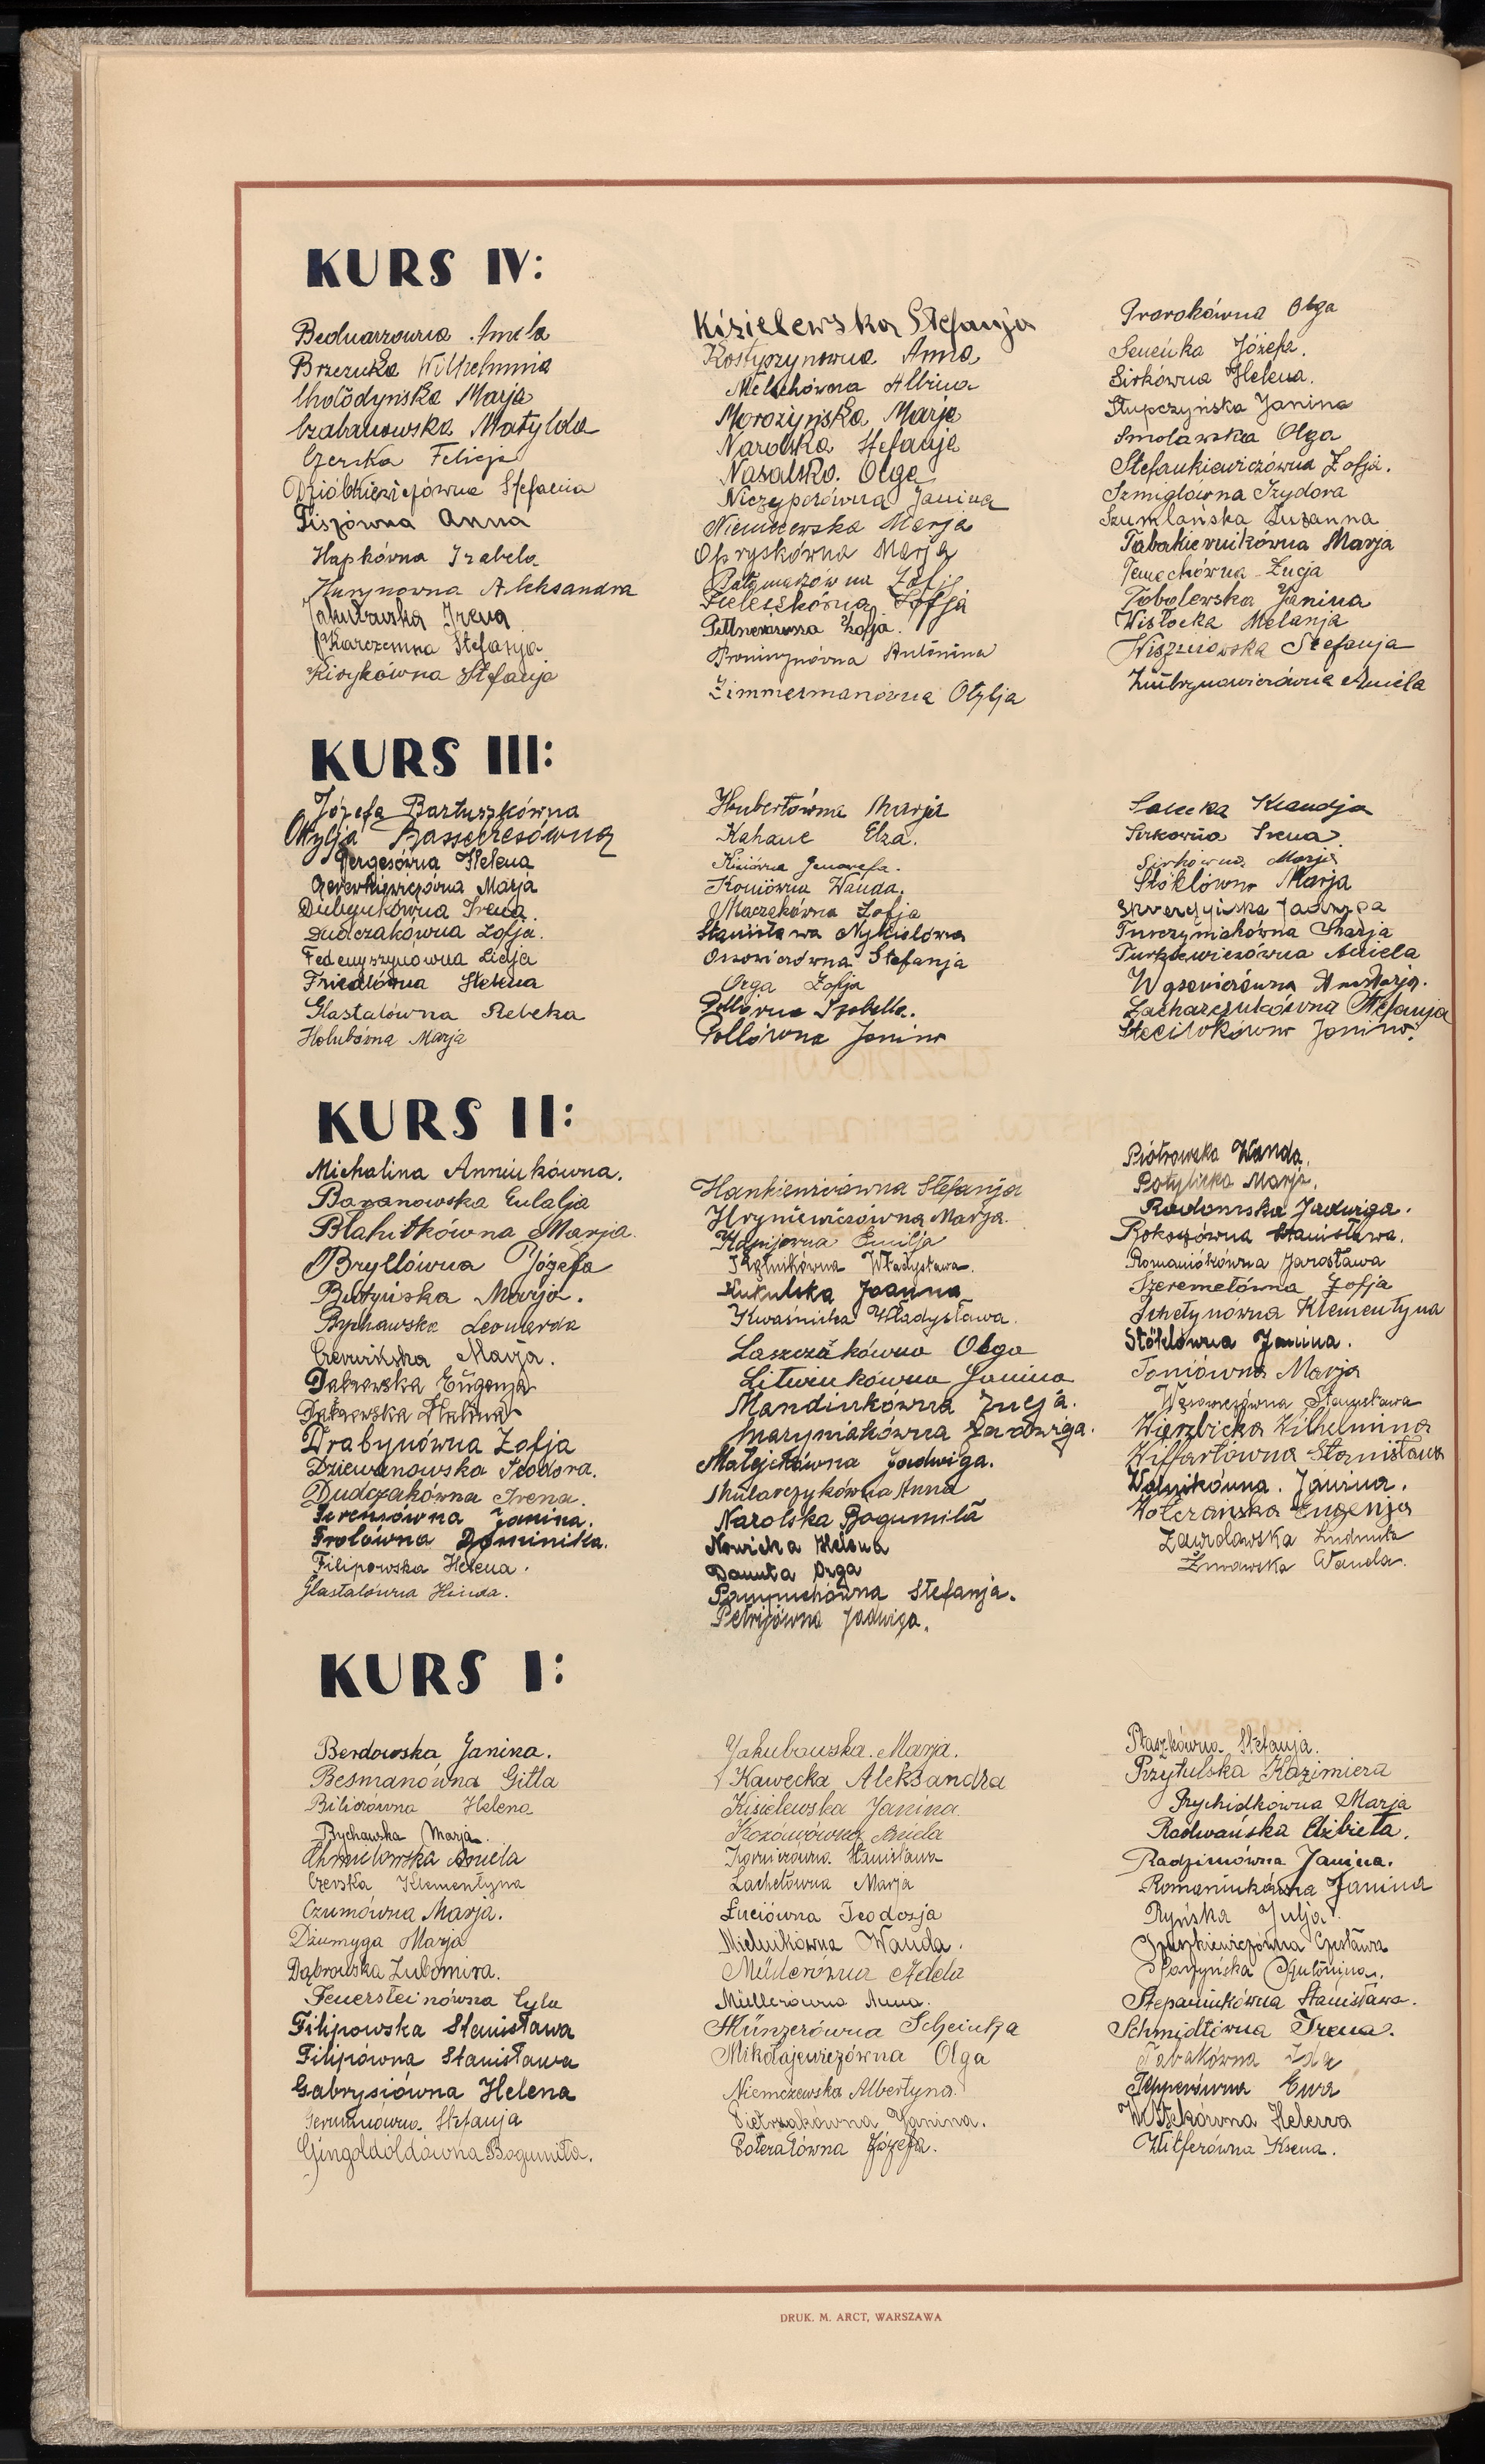 KURS IV:
Bednarzówna Aniela
Brzezicka Wilhelmina
Chołodyńska Marja
Czabanowska Matylda
Czerska Felicja
Dzióbkiewiczówna Stefania
Fiszówna Anna
Hapkówna Izabela
Hurynowna Aleksandra
Jakubowska Irena
Karczemna Stefanja
Kirykówna Stefanja
Kisielewska Stefanja
Kostyszynowna Anna
Melechówna Albina
Morozińska Marja
Narolska Stefanja
Nasalska Olga
Niczyporówna Janina
Niemczewska Marja
Opryskówna Marja
Zofja
Pieleszkówna Zofja
Zofja.
Antonina
Zimmermanówna Otylja
Prorokówna Olga
Seneńka Józefa.
Sirkówna Helena.
Słupczyńska Janina
Smolawska Olga
Stefankiewiczówna Zofja.
Szmiglówna Izydora
Szumlańska Zuzanna
Tabakiernikówna Marja
Łucja
Tobolewska Janina
Wisłocka Melanja
Wiszniowska Stefanja
Aniela
KURS III:
Józefa Bartuszkówna
Otylja Bassechesówna
Bergesówna Helena
Marja
Dubynkówna Irena.
Dudczakówna Zofja.
Fedenyszynówna Lidja
Friedlówna Helena
Glastalówna Rebeka
Hołubówna Marja
Hubertówna Marja
Kahane Elza.
Genowefa.
Koniówna Wanda.
Maczakówna Zofja
Stanisława Nykielówna
Ossowiczówna Stefanja
Orga Zofja
Pollówna Izabella.
Pollówna Janina
Salecka Klaudja
Sirkówna Irena.
Sirkówna Marja
Stöklówna Marja
Jadwiga
Turczyniakówna Marja
Turkiewiczówna Aniela
Wąsowiczówna Anastazja.
Zacharczukówna Stefanja
Steciukówna Janina.
KURS II:
Michalina Anniukówna.
Baranowska Eulalja
Blahitkówna Marja.
Bryllówna Józefa
Budyńska Marja.
Bychawska Leonarda
Czerwińska Marja.
Dąbrowska Eugenja
Dąbrowska Halina
Drabynówna Zofja
Dziewanowska Teodora.
Dudczakówna Irena.
Ferensówna Janina.
Frolówna Dominika.
Filipowska Helena.
Glastalówna Hinda.
Hankiewiczówna Stefanja
Hryniewiczówna Marja.
Kapijowna Emilja
Kątnikówna Władysława.
Kukulska Joanna
Kwaśnicka Władysława.
Laszczakówna Olga
Litwinkówna Janina
Mandiukówna Łucja.
Maryniakówna Jadwiga.
Matejkówna Jadwiga.
Mularczykówna Anna
Narolska Bogumiła
Nowicka Helena
Danuta Orga
Panyuchówna Stefanja.
Petrijówna Jadwiga.
Piotrowska Wanda.
Potylicka Marja.
Radomska Jadwiga.
Rokoszówna Stanisława.
Romaniukówna Jarosława
Szeremetówna Zofja
Schetynówna Klementyna
Stöklówna Janina.
Toniówna Marja
Wąsowiczówna Stanisława
Wierzbicka Wilhelmina
Wiffartówna Stanisława
Wolnikówna. Janina.
Wołczańska Eugenja
Zawadowska Ludmiła
Żmowska Wanda.
KURS I:
Berdowska Janina.
Besmanówna Gitla
Biliczówna Helena
Bychawska Marja.
Chmielowska Aniela
Czerska Klementyna
Czumówna Marja.
Dżumyga Marja
Dąbrowska Lubomira.
Feuersteinówna Cyla
Filipowska Stanisława
Filipówna Stanisława
Gabrysiówna Helena
Stefanja
Gingoldóldówna Bogumiła.
Jakubowska. Marja.
Kawęcka Aleksandra
Kisielewska Janina.
Kozówówna Aniela
Korniczówna. Stanisława
Lachetówna Marja
Łuciówna Teodozja
Mielnikówna Wanda.
Müllerówna Adela
Müllerówna Anna.
Münzerówna Scheindja
Mikołajewiczówna Olga
Niemczewska Albertyna.
Pietrzakówna Janina.
Poterałówna Józefa.
Ptaszkówna. Stefanja.
Przytulska Kazimiera
Prychidkówna Marja
Radwańska Elżbieta.
Radzimówna Janina.
Romaniukówna Janina
Ryńska Julja.
Czesława
Antonina.
Stepaniukówna Stanisława.
Schmidtówna Irena.
Tabakówna Ida
Tepperówna Ewa
Witekówna Helena
Witferówna Ksena.
DRUK. M. ARCT, WARSZAWA